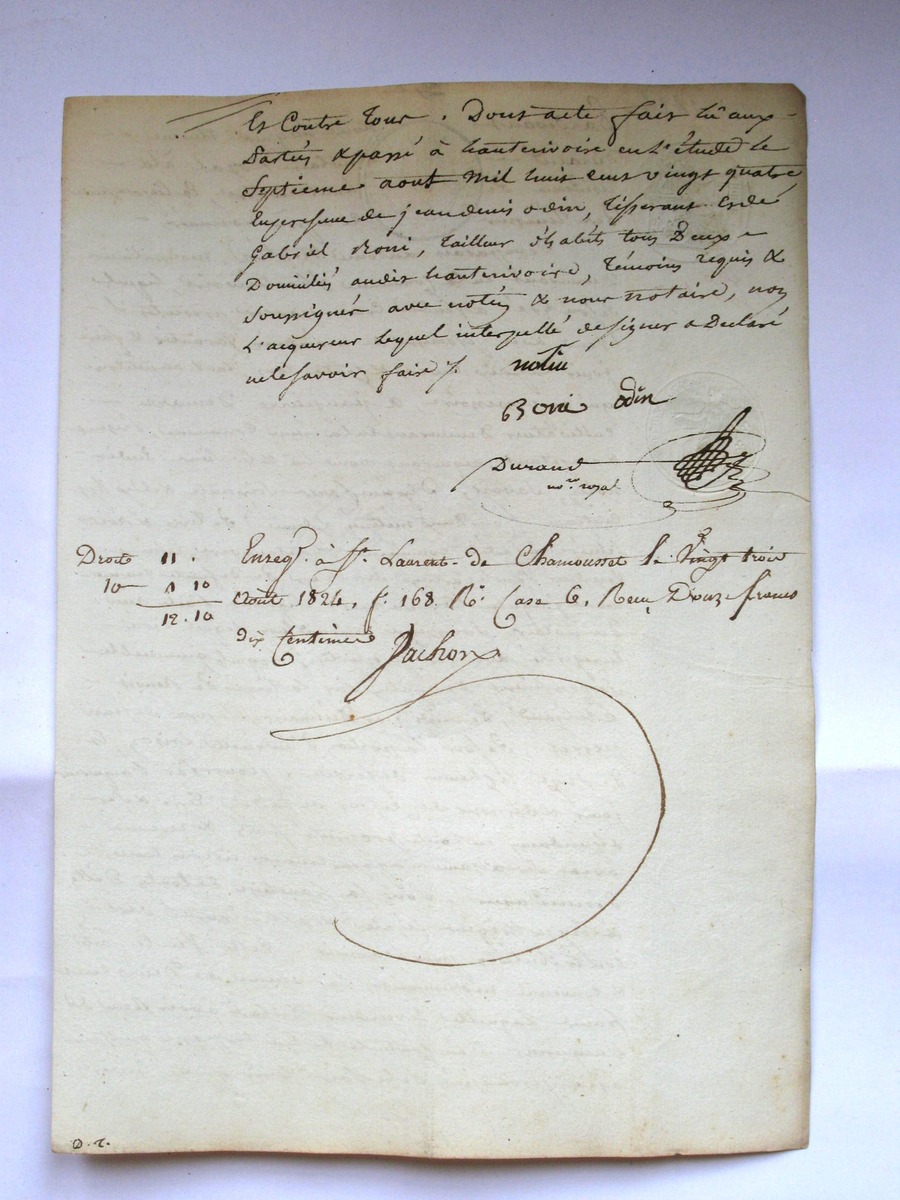 Et Contre tous. Dont acte fait lû aux
Parties & passé à hauterivoire en L'étude le
Septieme aout mil huit cent vingt quatre
En presence de jean denis odin, tisserant et de
Gabriel Boni, tailleur d'habits tous Deux
Domiciliés audit hauterivoire, témoins requis &
soussignés avec notié & nous notaire, non
L'acquereur lequel interpellé de signer a Declaré
ne le savoir faire /.
notié
Boni odin
Durand
no.re royal
Droit 11.
10 1 10
12. 10
Enreg. à St. Laurent de Chamousset le Vingt trois
Août 1824, f. 168 R.o Case 6, Reçu Douze francs
dix Centimes
Jachon
D. r.